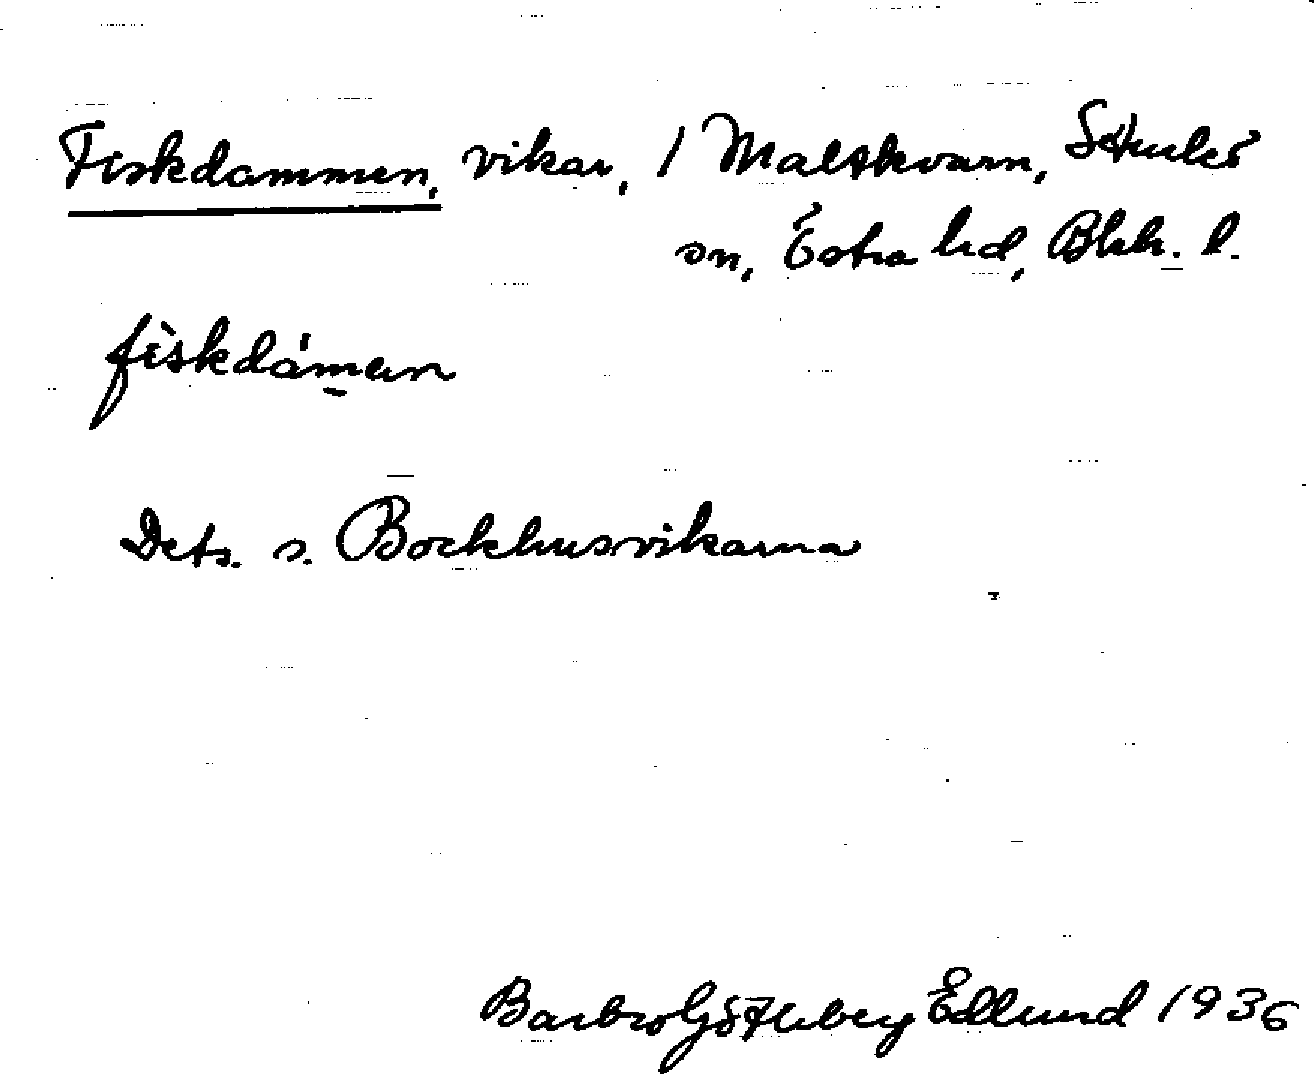 Fiskdammen, vikar, / Maltkvarn, Sturkö
sn, Östra hd, Blek. l.
fìskdámen
Dets. s. Bockhusvikarna
Barbro Götleberg Edlund 1936